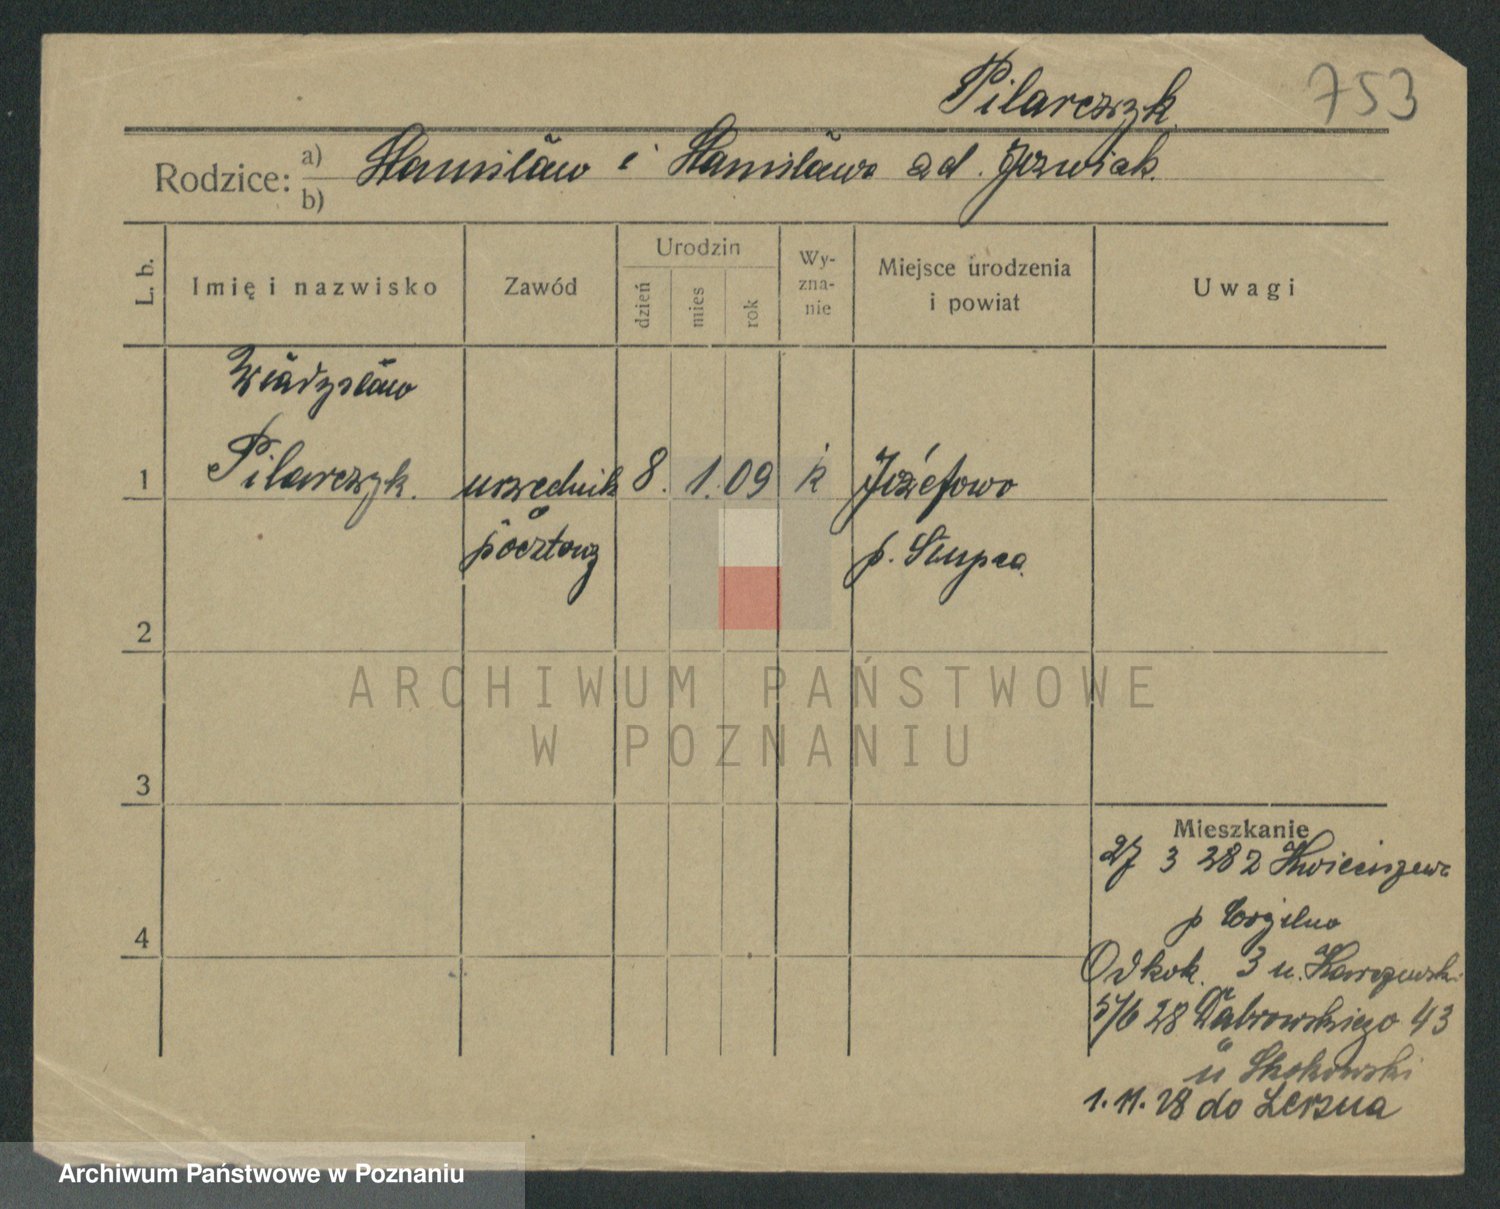 Pilarczyk 753
Rodzice: a) Stanisław i Stanisława ad. Jozwiak.
b)
L. b. Imię i nazwisko Zawód Urodzin dzień mies rok Wy-zna-nie Miejsce urodzenia i powiat Uwagi
Władysław
1 Pilarczyk. urzędnik 8. 1. 09 k Józefowo
pocztowy p. Słupca.
2
ARCHIWUM PAŃSTWOWE
W POZNANIU
3
Mieszkanie
27 3 28 z Kwieciszewa
4 p
Odkok. 3 u.
5/6 28 Dąbrowskiego 43
u Skokowski
1. 11. 28 do Leszna
Archiwum Państwowe w Poznaniu